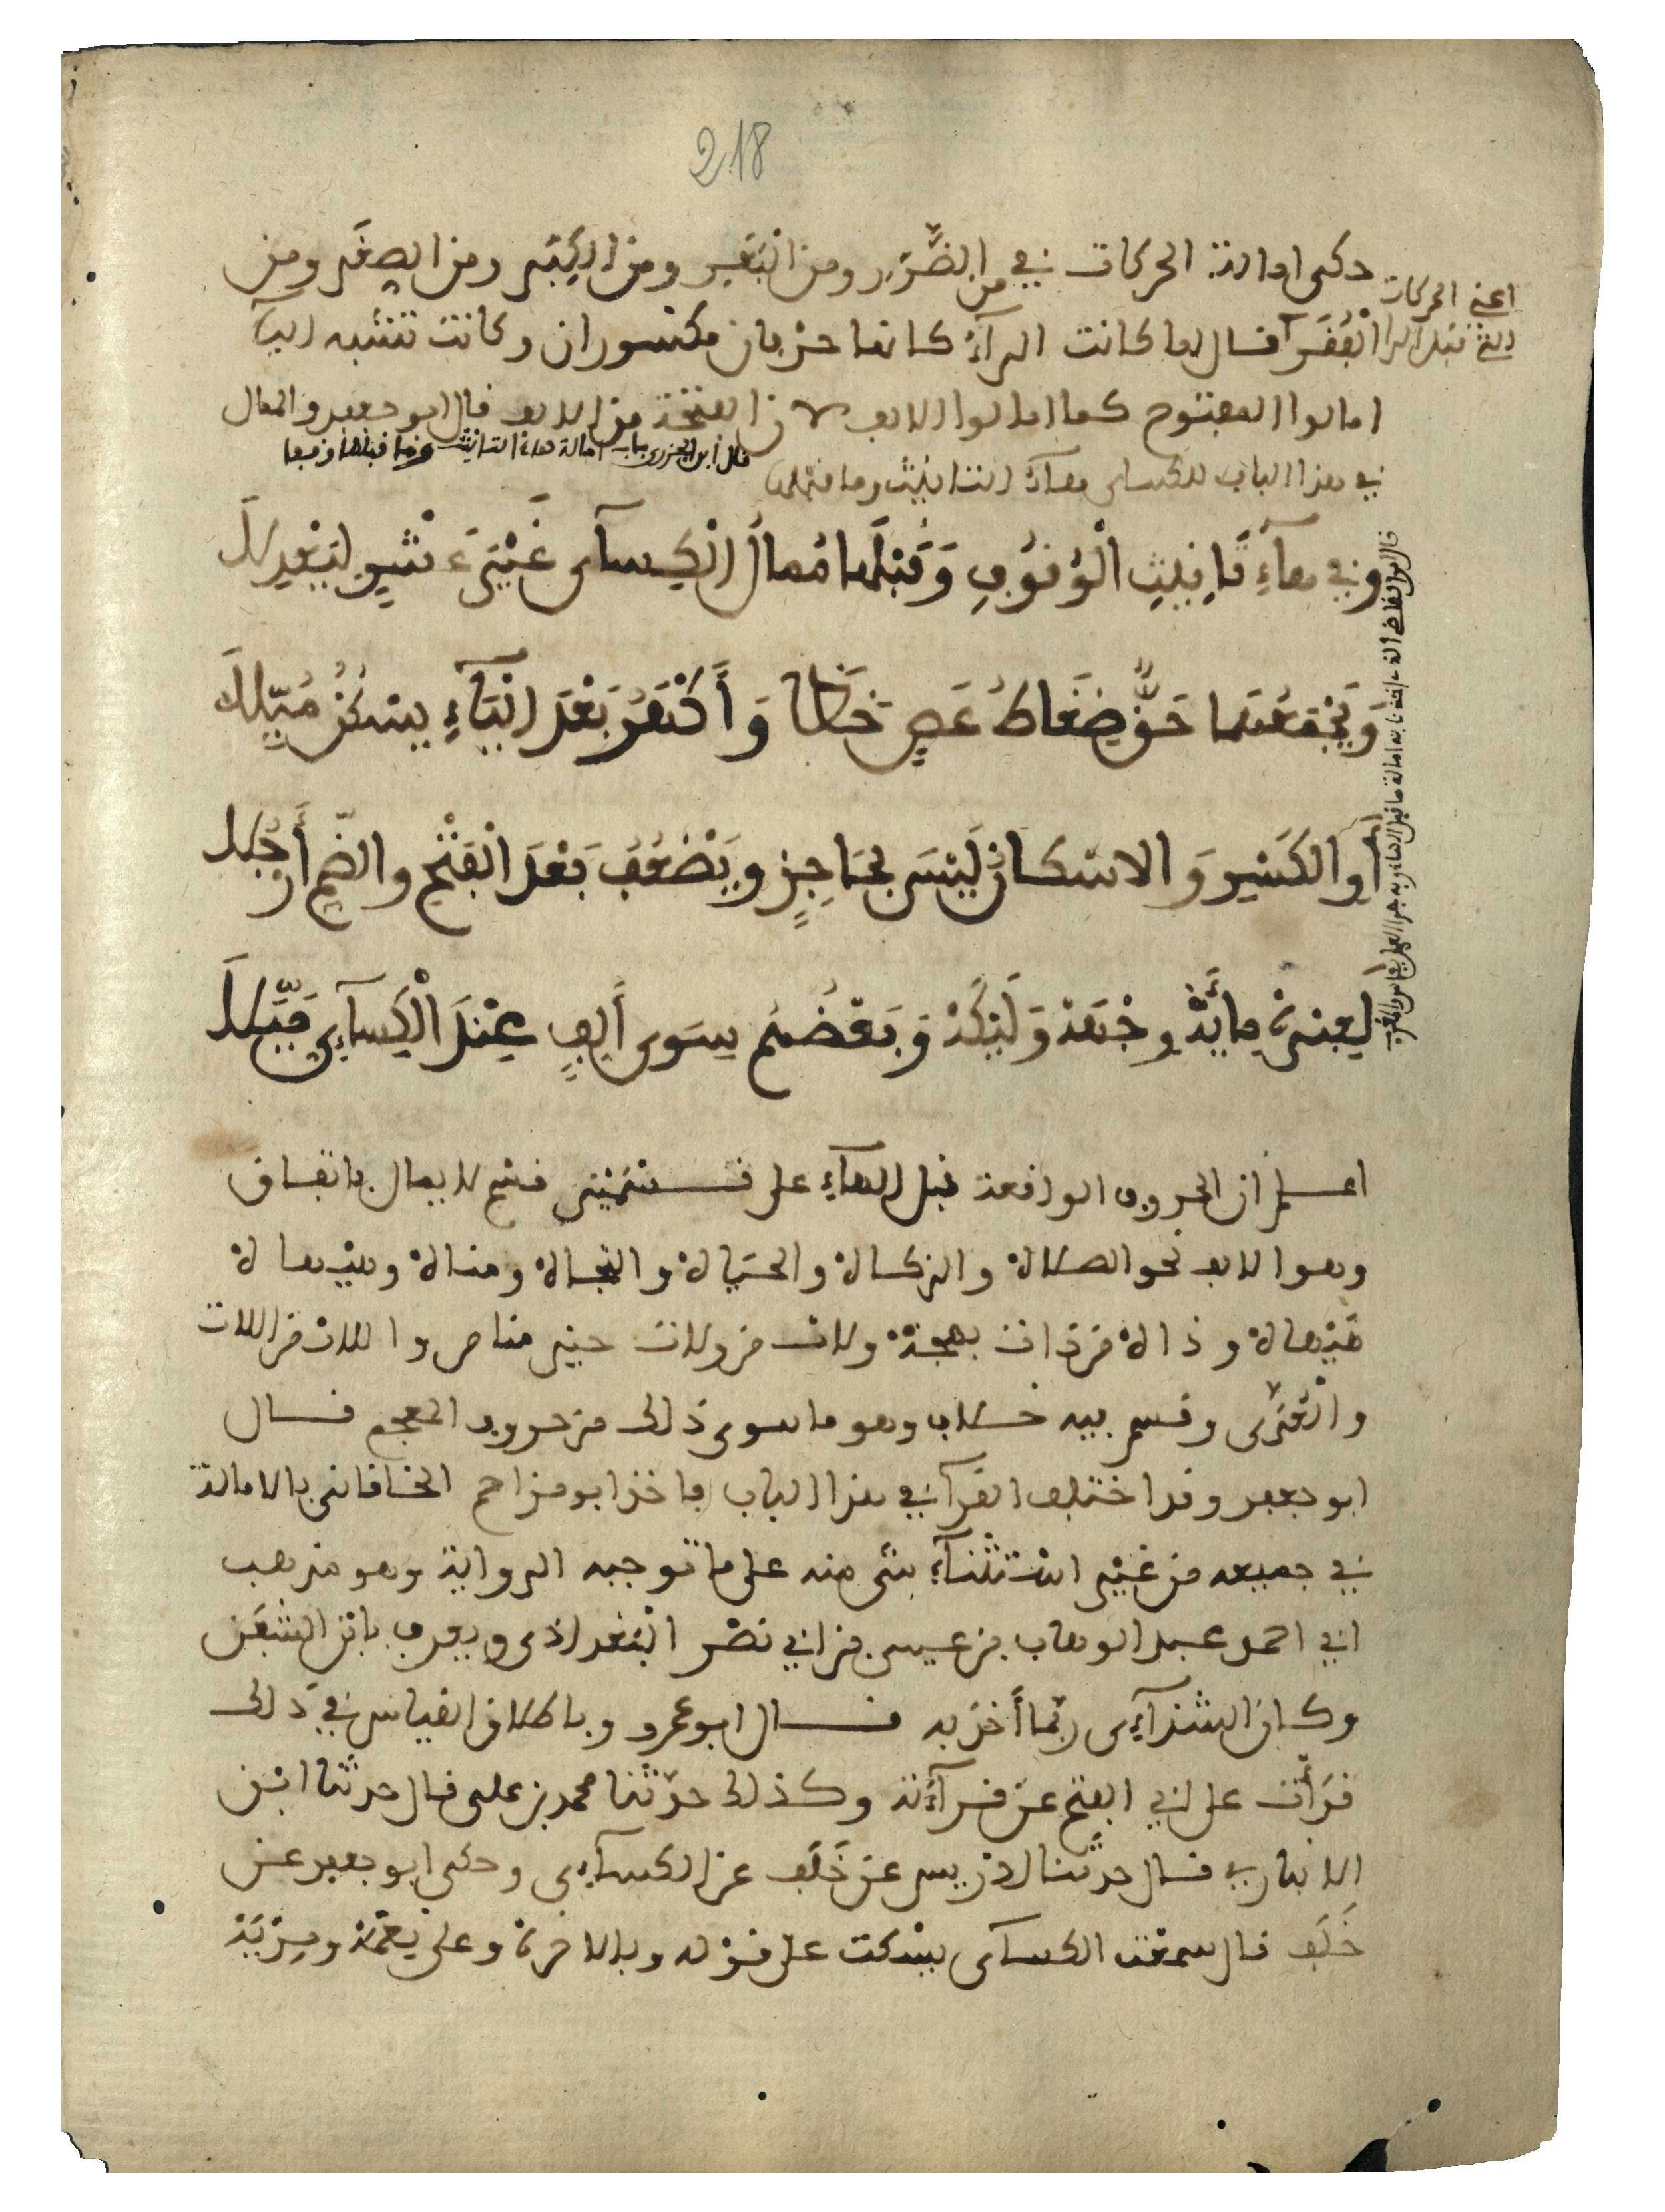 218
حكى امالة الحركات في من الضَّرر ومن البَقَر ومن الكِبَر ومن الصِغَر ومن
اعني الحركات
التي قبل الرا
الْفُقَرآ قال لما كانت الرآءُ كانها حرفان مكسوران وكانت تشبه اليآء
امالوا المفتوح كما امالوا الالف لان الفتحة من الالف قال ابو جعفر والممال
في هذا الباب للكساى هآءُ التانيث وما قبلها
قال ابن الجزري باب امالة هاء التانيث وما قبلها وقفا
وفي هآءِ تَانِيثِ الْوُقُوفِ وَقَبْلَهَا مُمَالُ الْكِسآى غَيْرَ عَشْرٍ لِيَعْدِلَا
وَيَجْمَعُهَا حَقٌّ ضِغَاطُ عَصٍ خَظَا وَأَكْهَرُ بَعْدَ الْيَآءِ يَسْكُنُ مُيِّلَا
أوِ الكَسْرِ وَالاسْكَانُ لَيْسَ بِحَاجِزٍ ويَضْعُفُ بَعْدَ الْفَتْحِ والضَّمِّ أَرْجُلَا
لَعِبْرَهْ مِائَهْ وِجْهَهْ وَلَيْكَهْ وَبَعْضُهُم سِوَى أَلِفٍ عِنْدَ الْكِسَآءِي مَيَّلَا
اعلم ان الحروف الواقعة قبل الهآءِ على قسمَيْن قسم لا يمال باتفاق
وهو الالف نحو الصلاة والزكاة والحَيَاة والنجاة ومناة وهَيْهاة
هَيْهاة وذاة من ذات بهجة ولات من ولات حين مناص واللات من اللات
والْعُزَّى وقسم فيه خلاف وهو ما سوى ذلك من حروف المعجم قال
ابو جعفر وقد اختلف القرآ في هذا الباب فاخذ ابو مزاحم الخاقاني بالامالة
في جميعه من غَيْر اسْتثنآءِ شى منه على ما توجبه الرواية وهو مذهب
ابي احمد عبد الوهاب بن عيسى بن ابي نصْر البَغدادى ويعرف بابن الشَفَق
وكان الشذآءِى ربّما أَخذ به قال ابو عمرو وباطلاق القياس في ذلك
قرَأْت على ابي الفتح عن قرآءَته وكذلك حدّثنا محمد بن على قال حدثنا ابْن
الانباري قال حدّثنا ادريس عن خَلَف عن الكسآءِى وحكى ابو جعفر عن
خَلَف قال سمعْت الكسآى يسْكت على قوْله وبالاخرة وعلى نِعْمَة ومِرْيَة